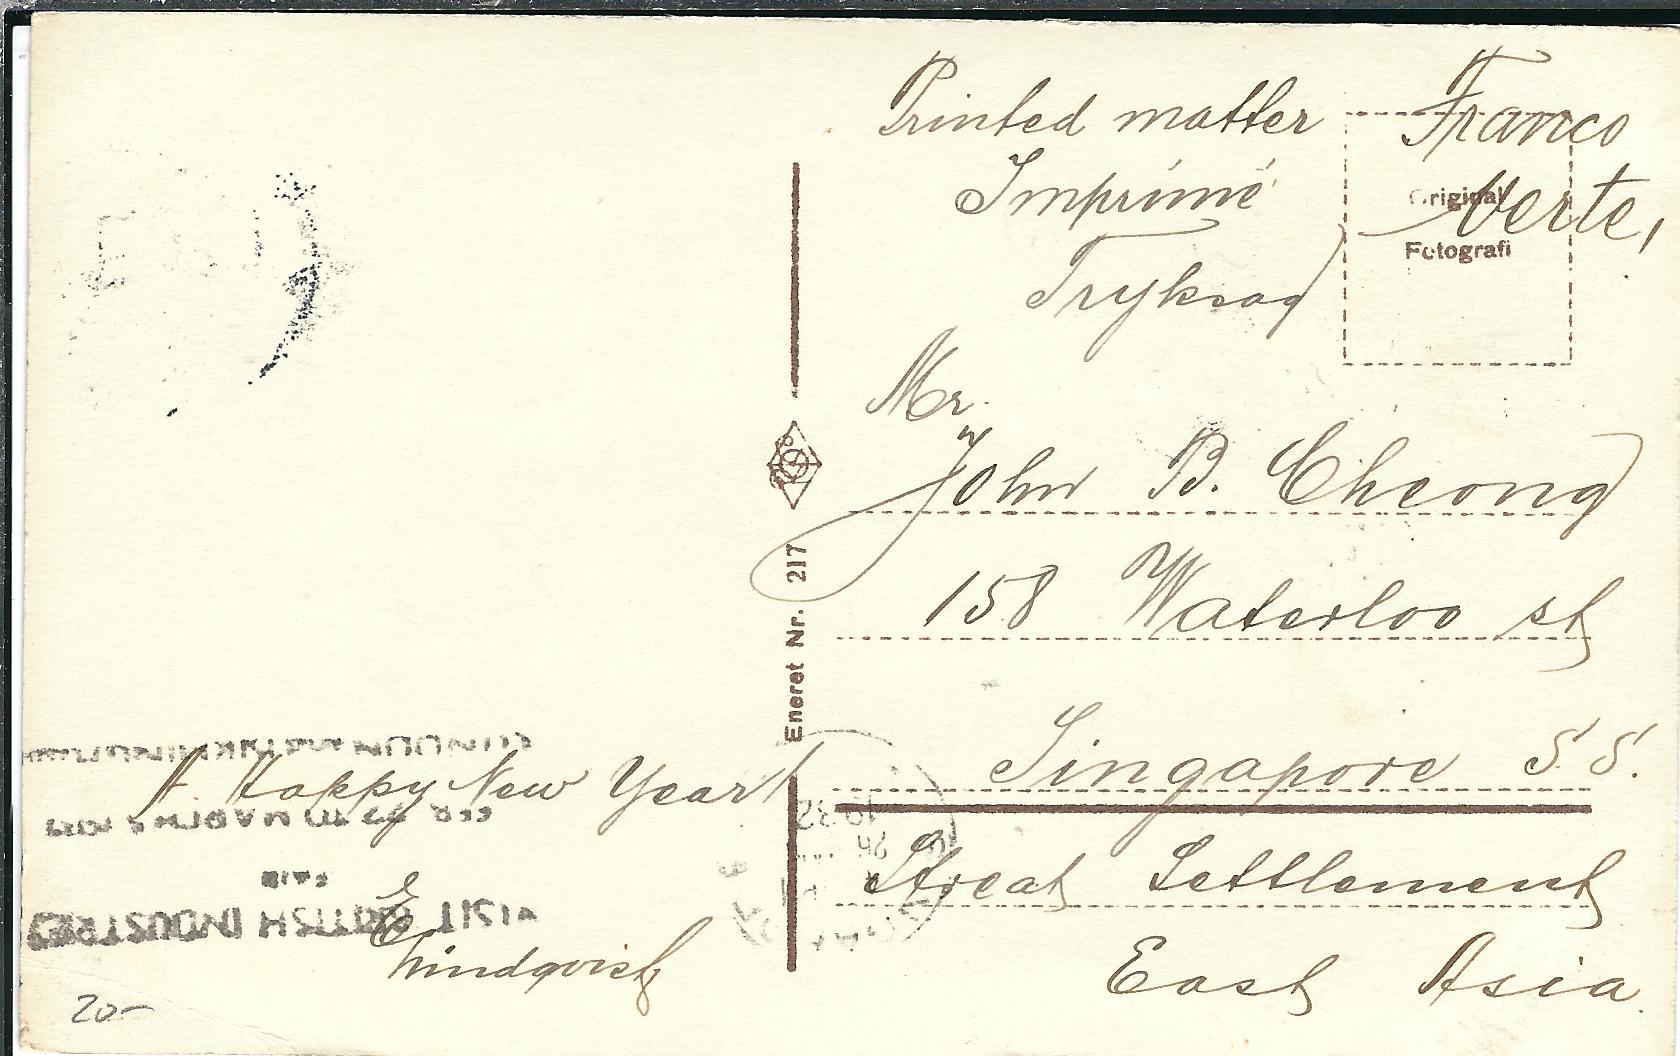 Printed matter
Franco
Imprimé
Verte,
Tryksag
Original
Fotografi
Mr.
John B. Cheong
158 Waterloo st
Singapore S.S.
Streat Settlement
East Asia
Eneret Nr. 217
A Happy New Year!
E
Lindqvist
VISIT BRITISH INDUSTRIES
FAIR
1932
20-